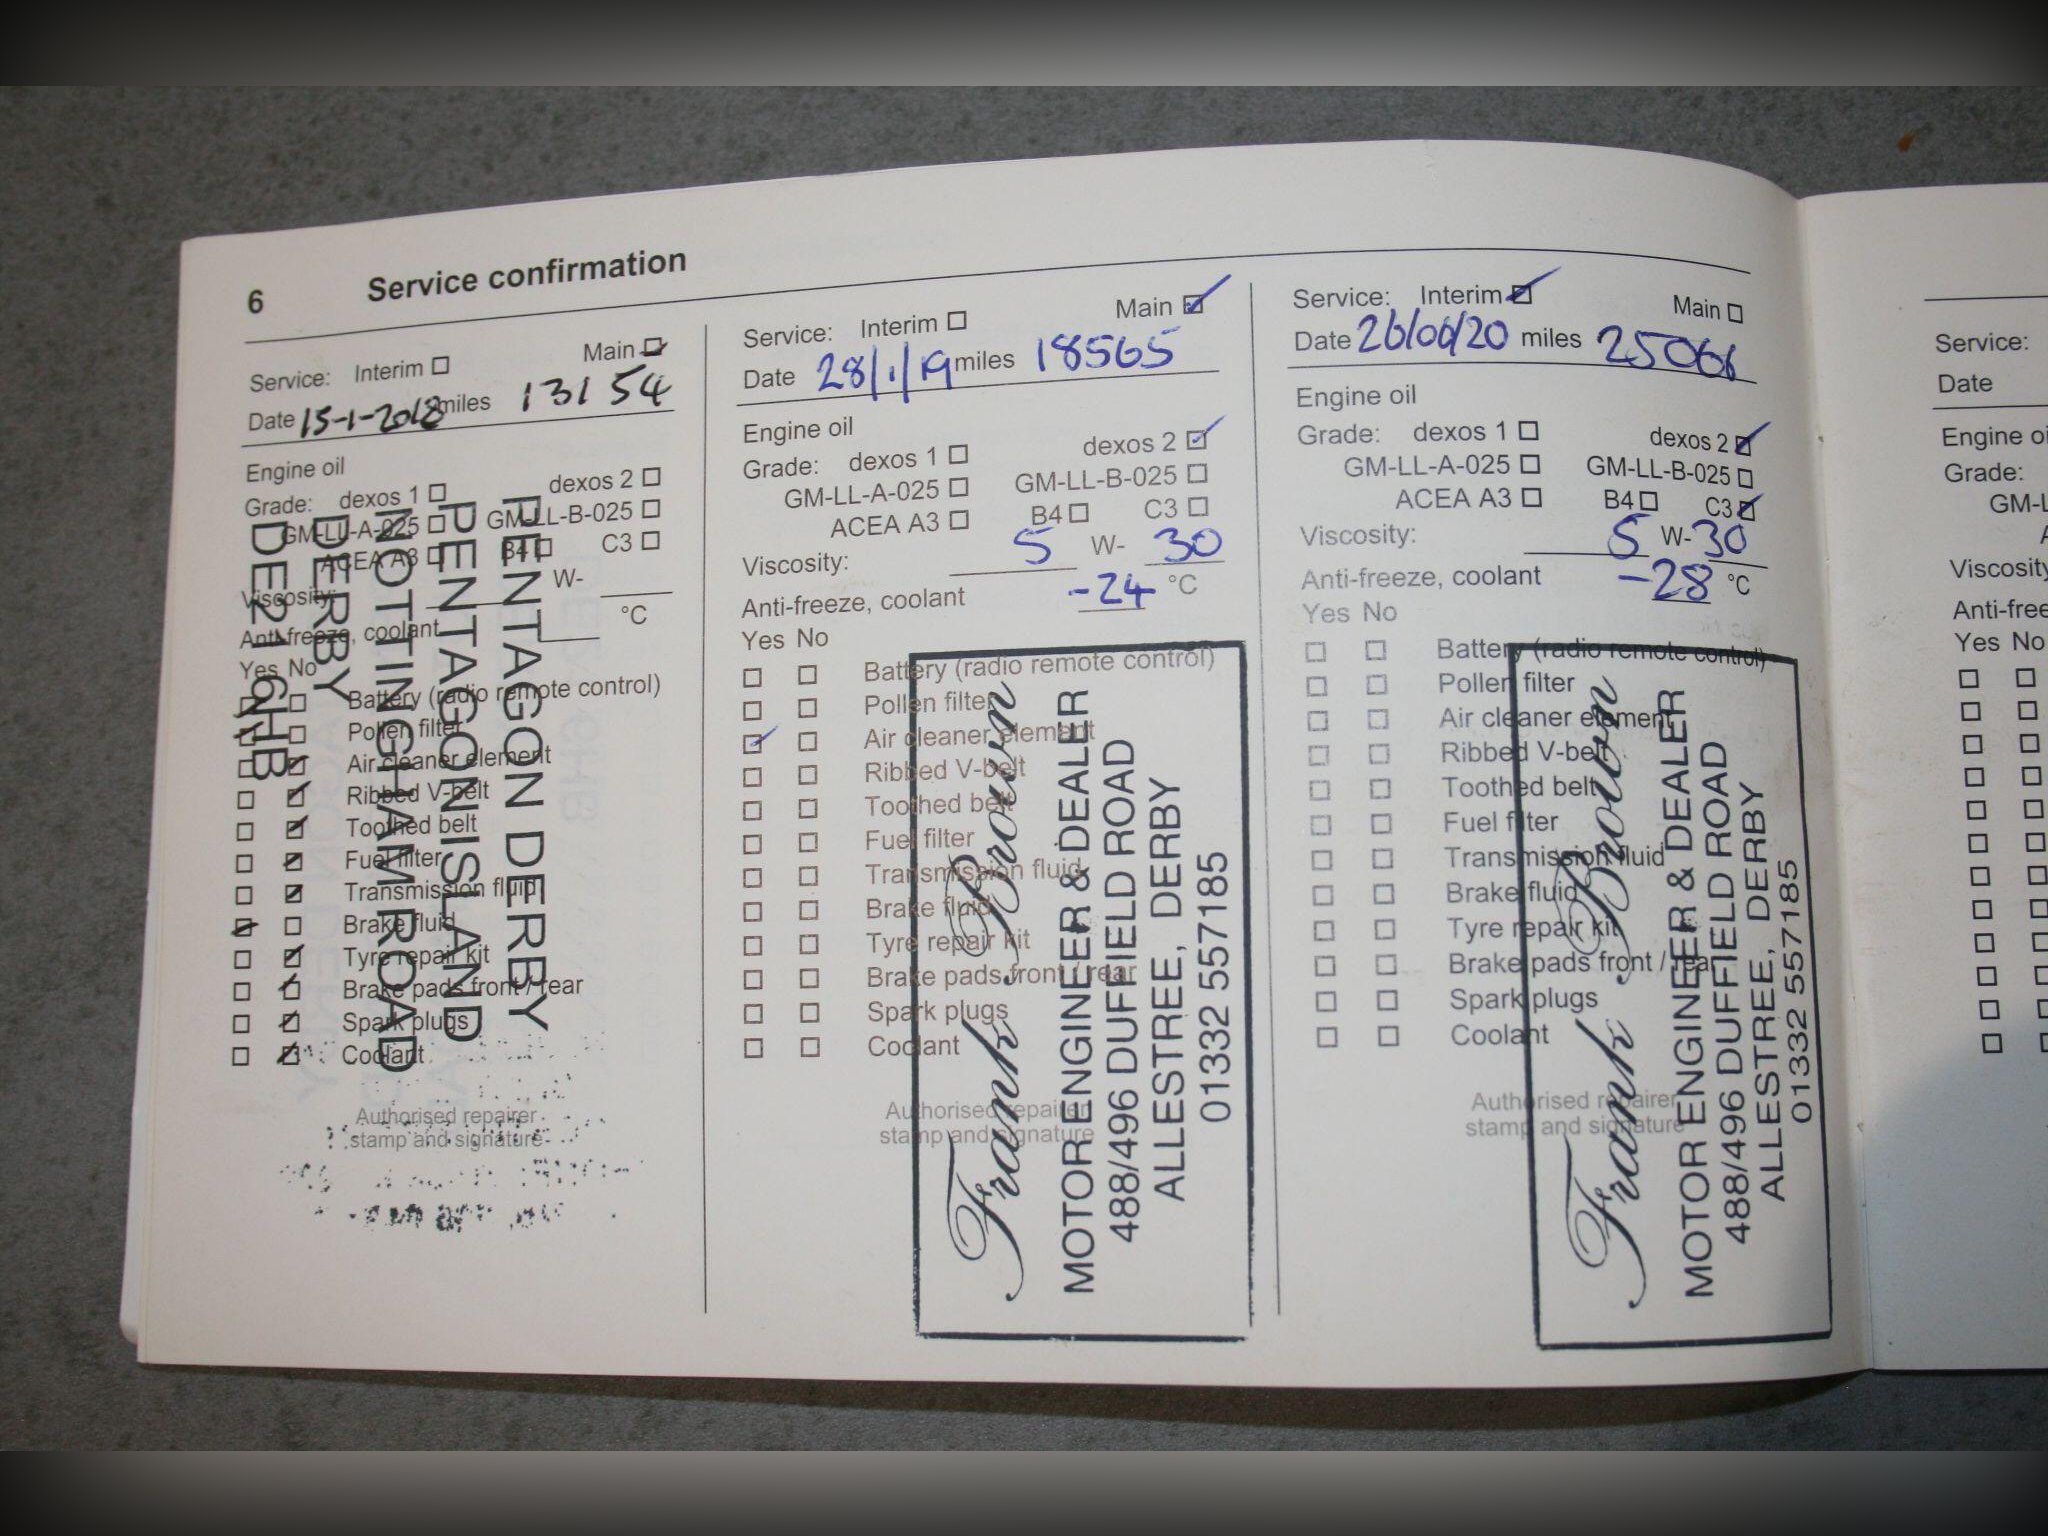 6 Service confirmation
Service: Interim Main
Date 15-1-2018 miles 13154
Engine oil
Grade: dexos 1 dexos 2
GM-LL-A-025 GM-LL-B-025
ACEA A3 B4 C3
Viscosity: W-
Anti-freeze, coolant °C
Yes No
Battery (radio remote control)
Pollen filter
Air cleaner element
Ribbed V-belt
Toothed belt
Fuel filter
Transmission fluid
Brake fluid
Tyre repair kit
Brake pads front / rear
Spark plugs
Coolant
Authorised repairer
stamp and signature
PENTAGON DERBY
PENTAGON ISLAND
NOTTINGHAM ROAD
DERBY
DE21 6HB
Service: Interim Main
Date 28/1/19 miles 18565
Engine oil
Grade: dexos 1 dexos 2
GM-LL-A-025 GM-LL-B-025
ACEA A3 B4 C3
Viscosity: 5 W- 30
Anti-freeze, coolant -24 °C
Yes No
Battery (radio remote control)
Pollen filter
Air cleaner element
Ribbed V-belt
Toothed belt
Fuel filter
Transmission fluid
Brake fluid
Tyre repair kit
Brake pads front / rear
Spark plugs
Coolant
Authorised repairer
stamp and signature
Frank Brown
MOTOR ENGINEER & DEALER
488/496 DUFFIELD ROAD
ALLESTREE, DERBY
01332 557185
Service: Interim Main
Date miles
Engine oil
Grade: dexos 1 dexos 2
GM-LL-A-025 GM-LL-B-025
ACEA A3 B4 C3
Viscosity: 5 W- 30
Anti-freeze, coolant -28 °C
Yes No
Battery (radio remote control)
Pollen filter
Air cleaner element
Ribbed V-belt
Toothed belt
Fuel filter
Transmission fluid
Brake fluid
Tyre repair kit
Brake pads front / rear
Spark plugs
Coolant
Authorised repairer
stamp and signature
Frank Brown
MOTOR ENGINEER & DEALER
488/496 DUFFIELD ROAD
ALLESTREE, DERBY
01332 557185
Service:
Date
Engine
Grade:
Viscosity
Yes No